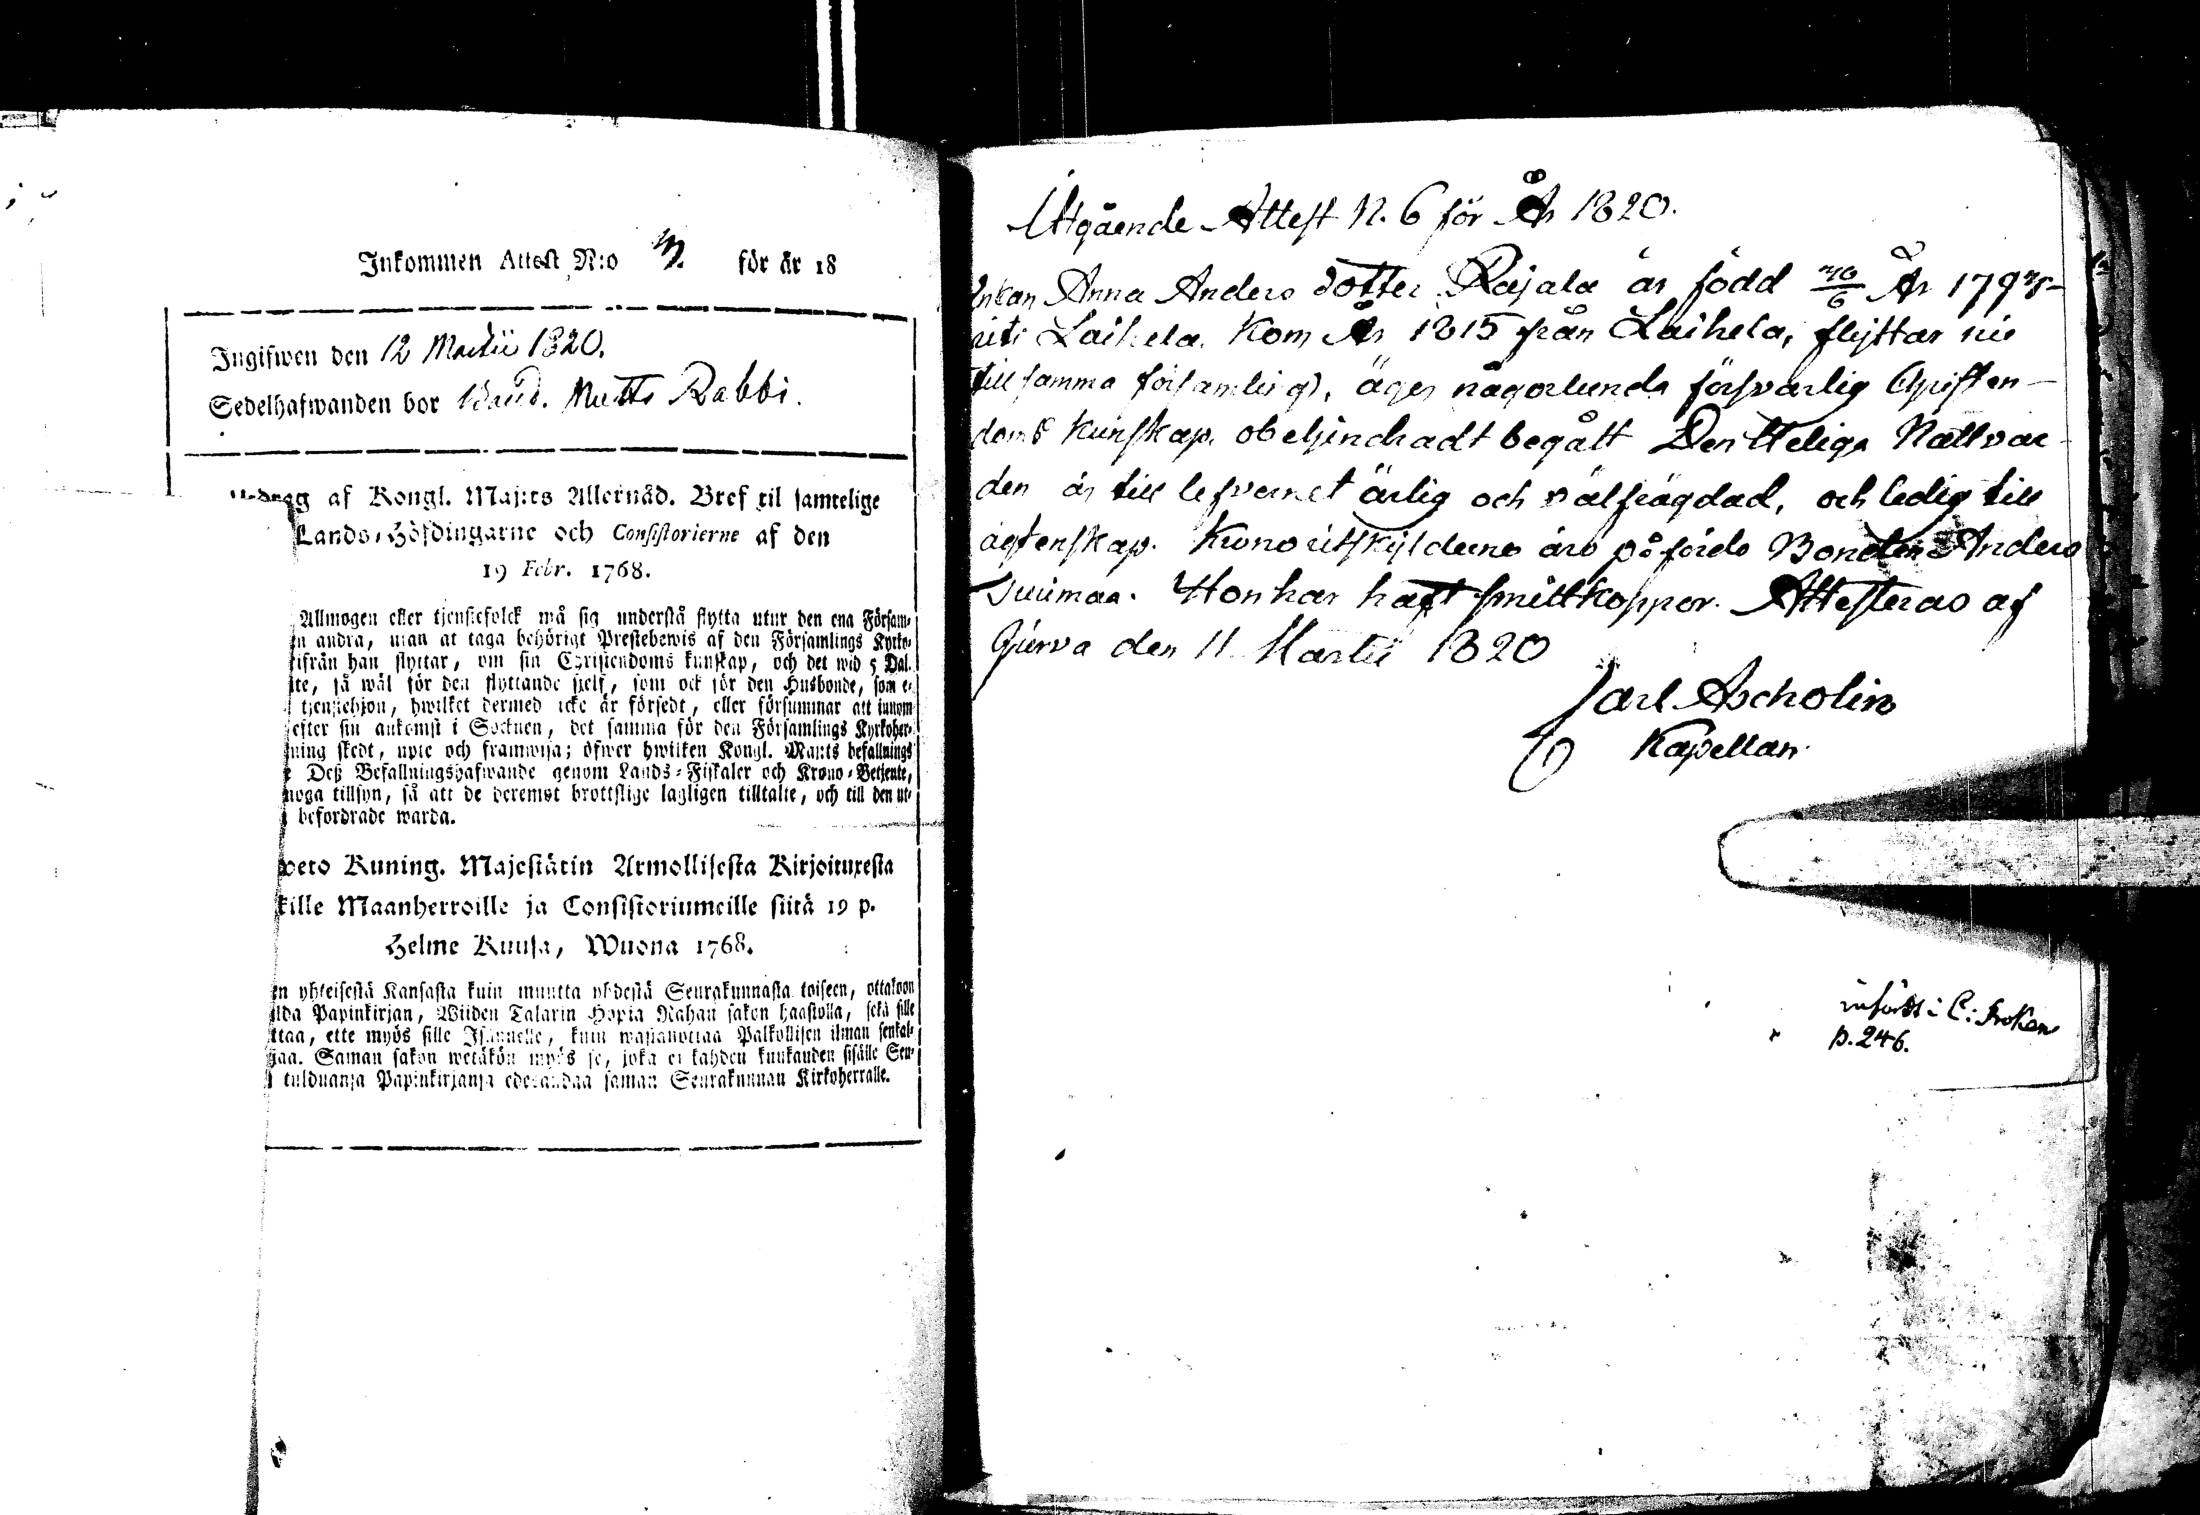 Inkommen Attest N:o 3. för år 18
Ingifwen den 12 Martii 1820.
Sedelhafwanden bor Matts Rabbi.
af Kongl. Maj:ts Allernåd. Bref til samtelige
Lands-Höfdingarne och Consistorierne af den
19 Febr. 1768.
Allmogen eller tjenstefolck må sig understå flytta utur den ena Försam-
andra, utan at taga behörigt Prestebewis af den Församlings Kyrko-
ifrån han flyttar, om sin Christendoms kunskap, och det wid 5 Dal.
te, så wäl för den flyttande sielf, som ock för den Husbonde, som e-
hwilket dermed icke är försedt, eller försummar att innom
efter sin ankomst i Socknen, det samma för den Församlings Kyrkoher-
ning skedt, upte och framwisa; öfwer hwilken Kongl. Maj:ts befallnings
Deß Befallningshafwande genom Lands-Fiskaler och Krono-Betjente,
noga tillsyn, så att de deremot brottslige lagligen tilltalte, och till den ut-
befordrade warda.
weto Kuning. Majestätin Armollisesta Kirjoituxesta
kille Maanherroille ja Consistoriumeille siitä 19 p.
Helme Kuusa, Wuona 1768.
en yhteisestä Kansasta kuin muutta yhdestä Seurakunnasta toiseen, ottakoon
lda Papinkirjan, Wiiden Talarin Hopia Rahan sakon haastolla, sekä sille
ttaa, ette myös sille Isännelle, kuin wastanottaa Palkollisen ilman senkal-
jaa. Saman sakon wetäkön myös se, joka ei kahden kuukauden sisälle Seu-
tulduansa Papinkirjansa edesandaa saman Seurakunnan Kirkoherralle.
Utgående Attest N. 6 för År 1820.
Enkan Anna Anders dotter Rajala är född 30/6 År 1793
uti Laihela. Kom År 1815 från Laihela, flyttar nu
till samma församling, äger någorlunda försvarlig Christen-
doms kunskap, obehindradt begått Den Heliga Nattvar-
den är till lefvernet ärlig och välfrägdad, och ledig till
ägtenskap. Krono utskylderne äro påförde Bonden Anders
Suumaa. Hon har haft smittkoppor. Attesteras af
Gjurva den 11 Martii 1820
Carl Ascholin
Kapellan.
infördt i C: boken
p. 246.